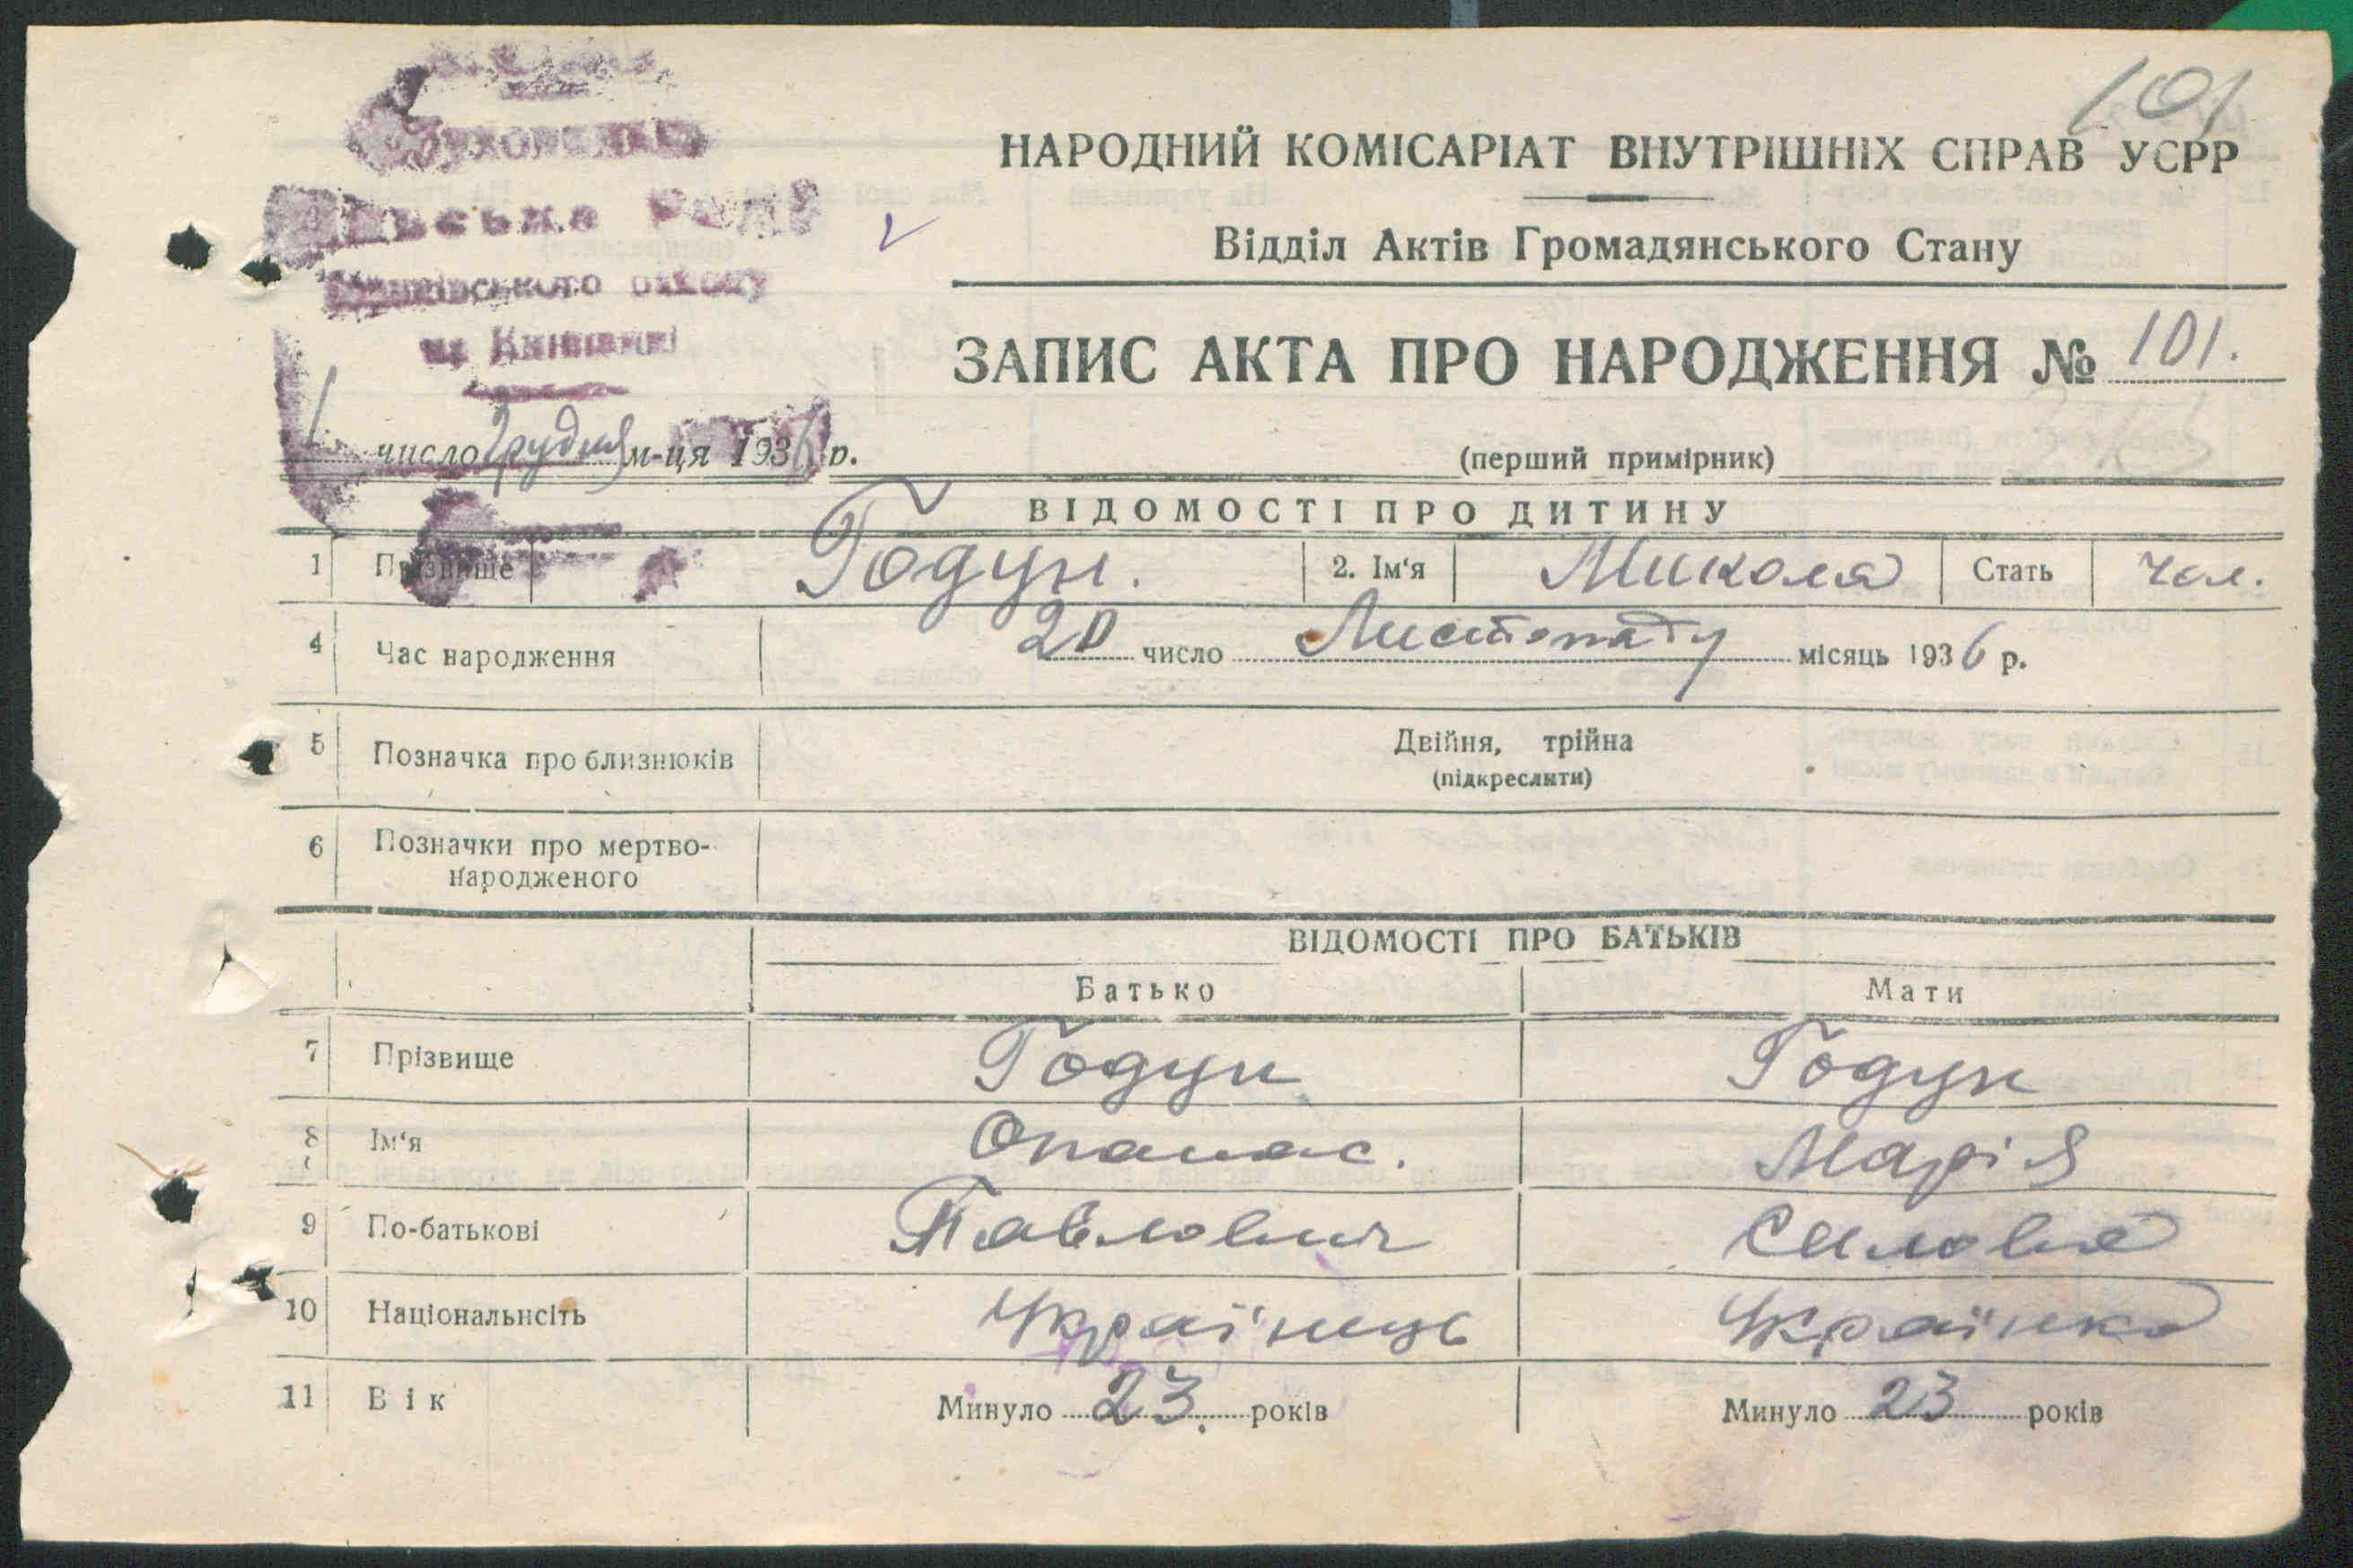 101
НАРОДНИЙ КОМІСАРІАТ ВНУТРІШНІХ СПРАВ УСРР
Відділ Актів Громадянського Стану
на Київщині
ЗАПИС АКТА ПРО НАРОДЖЕННЯ № 101.
1 число Грудня м-ця 1936 р.
(перший примірник)
ВІДОМОСТІ ПРО ДИТИНУ
1 Прізвище Годун. 2. Ім‘я Микола Стать Чол.
4 Час народження 20 число Листопаду місяць 1936 р.
5 Позначка про близнюків Двійня, трійна
(підкреслити)
6 Позначки про мертво-
народженого
ВІДОМОСТІ ПРО БАТЬКІВ
Батько Мати
7 Прізвище Годун Годун
8 Ім‘я Опанас. Марія
9 По-батькові Павлович Силовна
10 Національнсіть Українець Українка
11 Вік Минуло 23 років Минуло 23 років